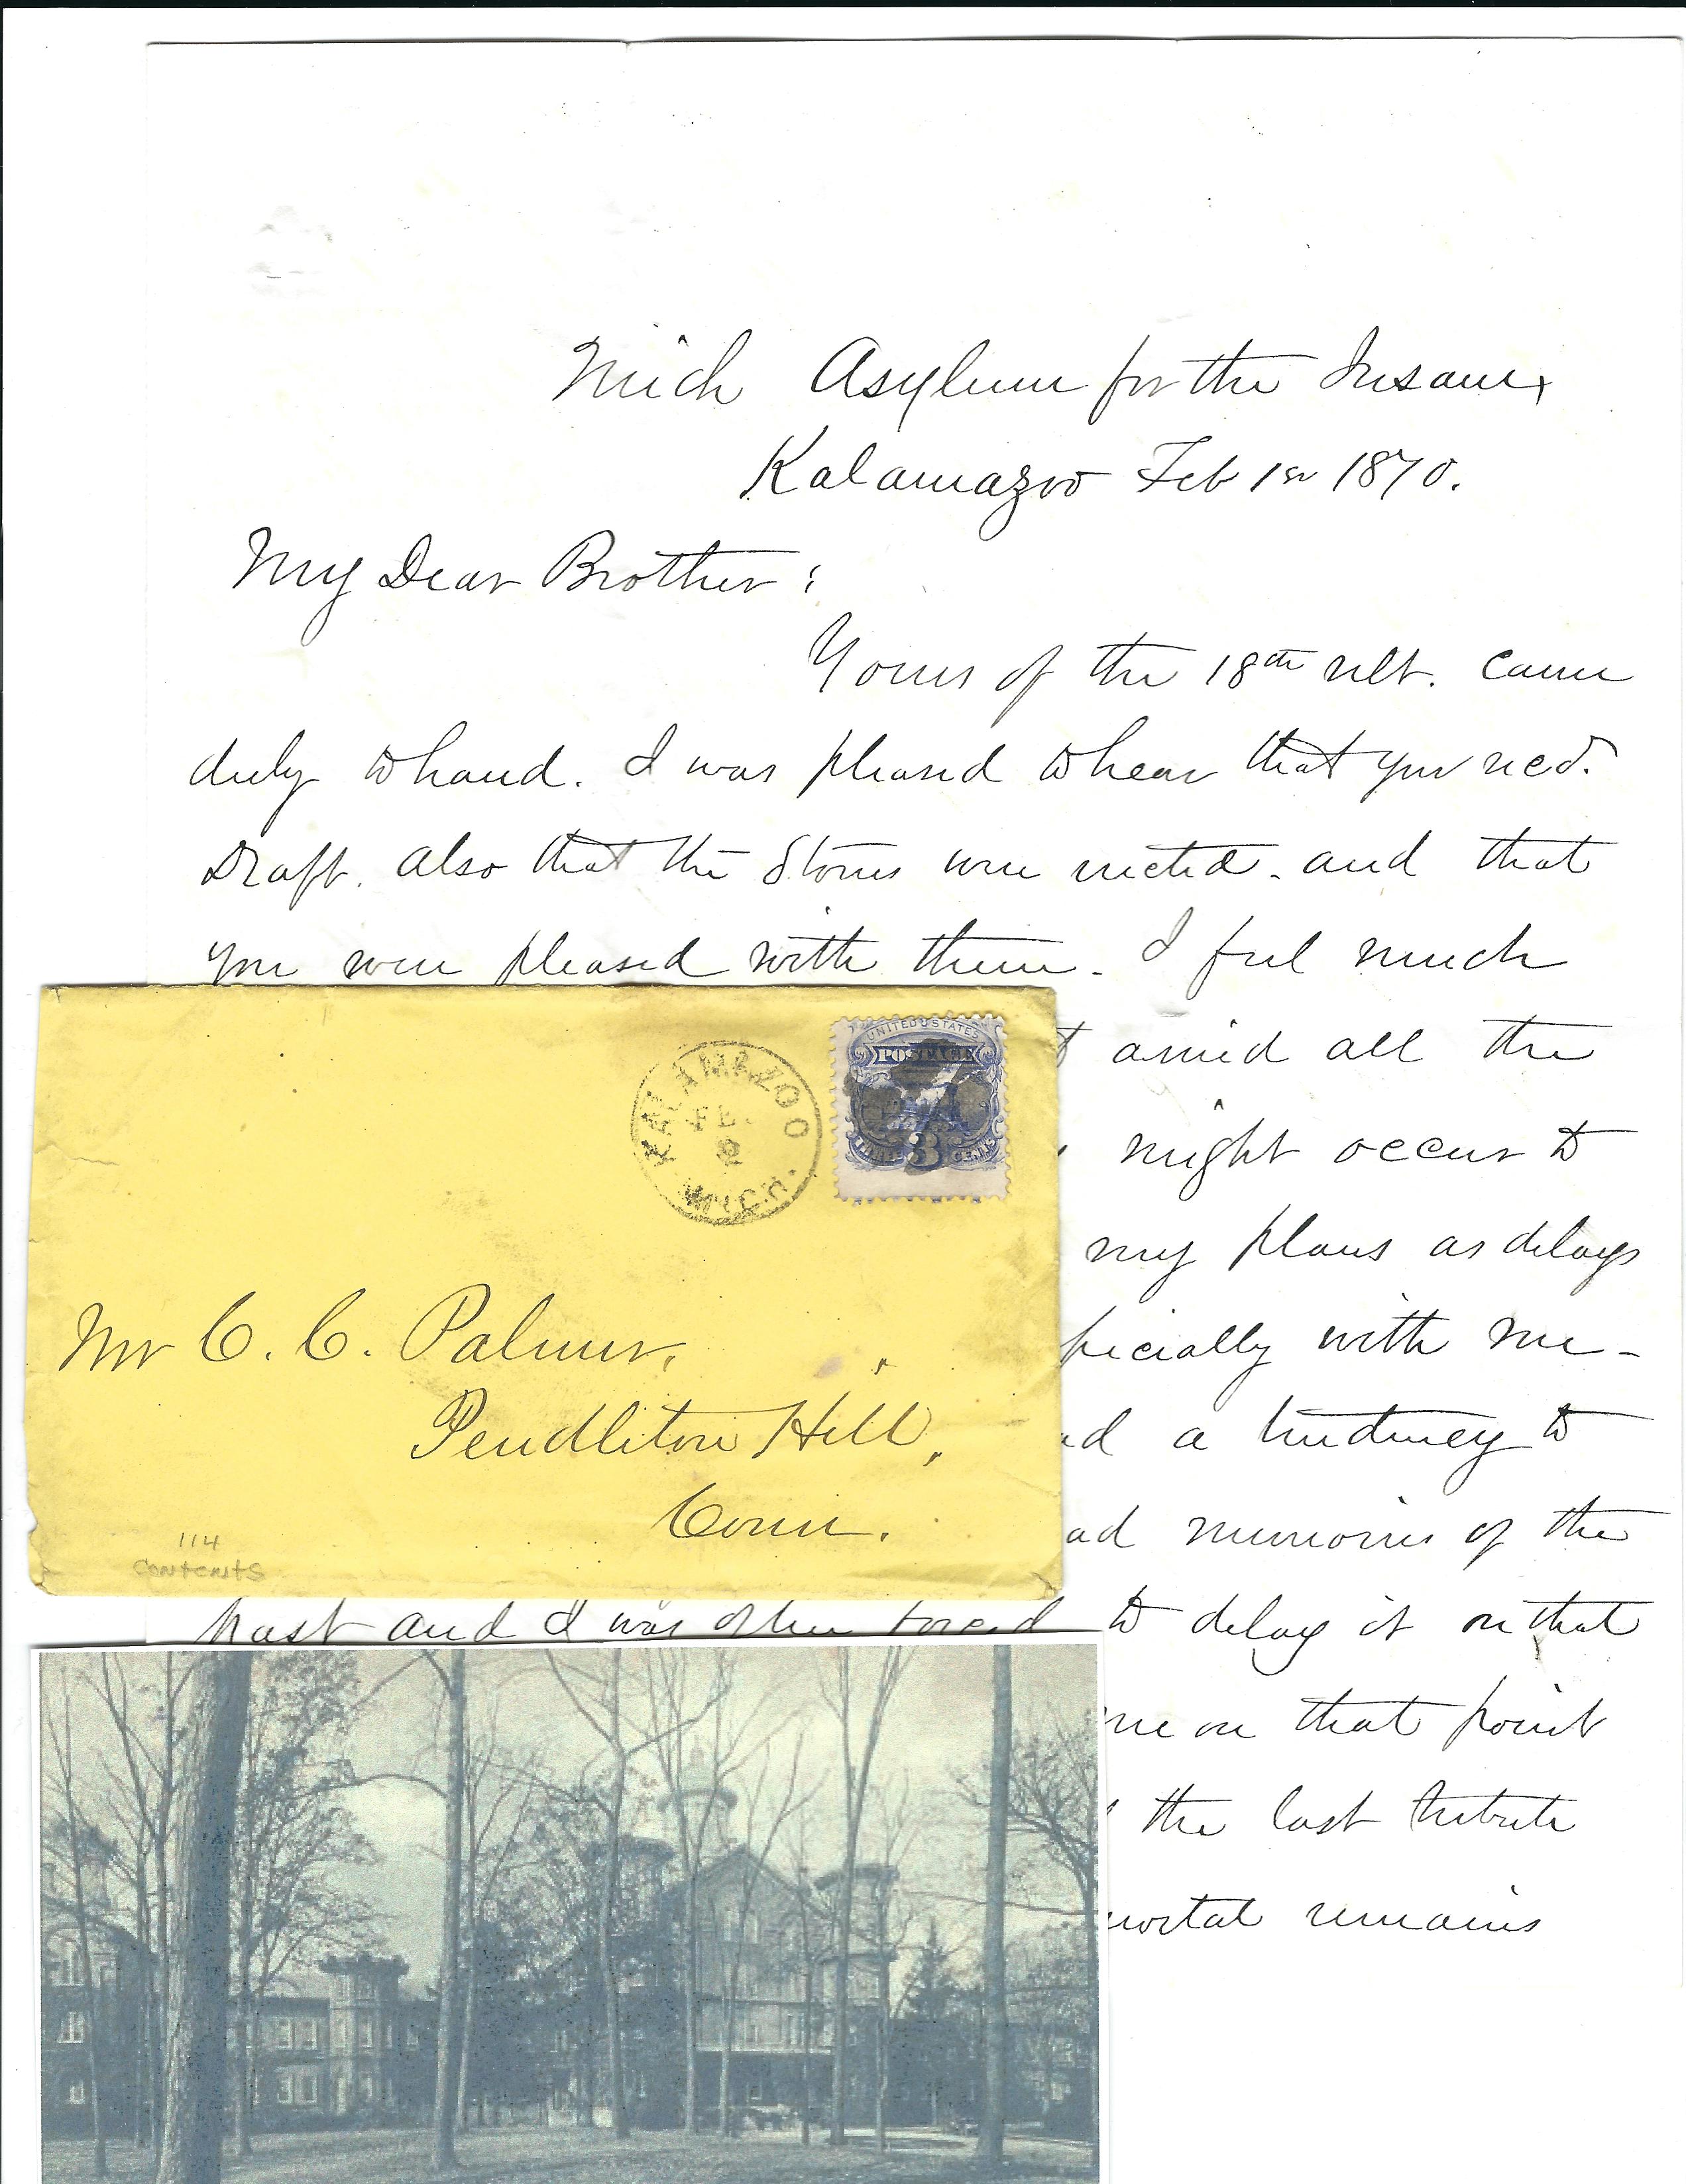 Mich Asylum for the Insane,
Kalamazoo Feb 1st 1870.
My Dear Brother:
Yours of the 18th ult. came
duly to hand. I was pleased to hear that you recd.
Draft. also that the Stones were erected. and that
you were pleased with them. I feel much
amid all the
might occur to
my plans as delays
pecially with me-
ad a tendency to
ad memories of the
past and I was often forced to delay it on that
me on that point
the last tribute
mortal remains
KALAMAZOO
FEB
2
MICH.
UNITED STATES
POSTAGE
THREE 3 CENTS
Mr C. C. Palmer,
Pendleton Hill,
Conn.
114
contents